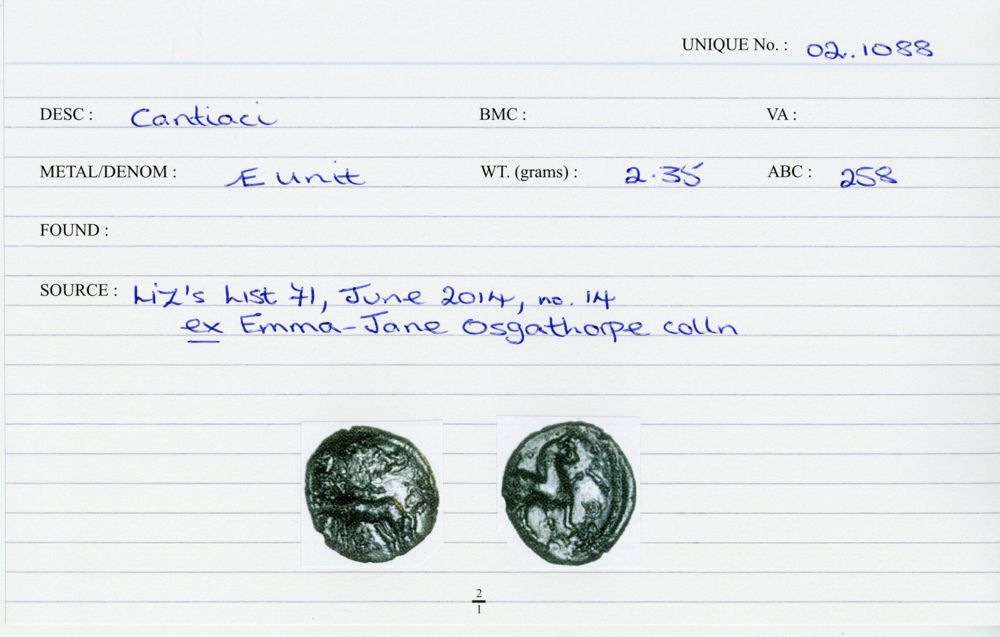 UNIQUE No. : 02.1088
DESC : Cantiaci BMC : VA :
METAL/DENOM : Æ Unit WT. (grams) : 2.35 ABC : 258
FOUND :
SOURCE : Liz's List 71, June 2014, no. 14
ex Emma-Jane Osgathorpe colln
2
1